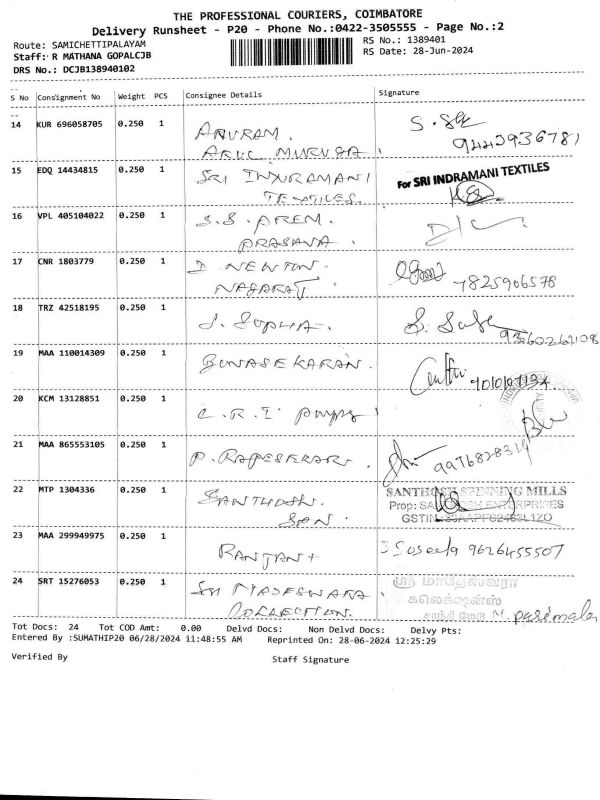 THE PROFESSIONAL COURIERS, COIMBATORE
Delivery Runsheet - P20 - Phone No.:0422-3505555 - Page No.:2
Route: SAMICHETTIPALAYAM
RS No.: 1389401
Staff: R MATHANA GOPALCJB
RS Date: 28-Jun-2024
DRS No.: DCJB138940102
S No Consignment No Weight PCS Consignee Details Signature
14 KUR 696058705 0.250 1 ANURAM.
ARUL MURUGA.
15 EDQ 14434815 0.250 1 SRI INDURAMANI For SRI INDRAMANI TEXTILES
TEXTILES.
16 VPL 405104022 0.250 1 S.S. PREM.
PRASANA.
17 CNR 1803779 0.250 1 I NEWTON. 7825906578
NAGARAJ.
18 TRZ 42518195 0.250 1 J. SOPHIA.
19 MAA 110014309 0.250 1 GUNASEKARAN.
20 KCM 13128851 0.250 1 C.R.I Pumps
21 MAA 865553105 0.250 1 P. RAJESEKARAN.
22 MTP 1304336 0.250 1 SANTHOSH. SANTHOSH SPINNING MILLS
SPN. Prop: SANTHOSH ENTERPRISES
GSTIN
23 MAA 299949975 0.250 1 RANJANI Suseela 9626455507
24 SRT 15276053 0.250 1 SRI MADESWARA ஸ்ரீ மாதேஸ்வரா
COLLECTION. கலெக்ஷன்ஸ்
M. parimala
Tot Docs: 24 Tot COD Amt: 0.00 Delvd Docs: Non Delvd Docs: Delvy Pts:
Entered By :SUMATHIP20 06/28/2024 11:48:55 AM Reprinted On: 28-06-2024 12:25:29
Verified By Staff Signature